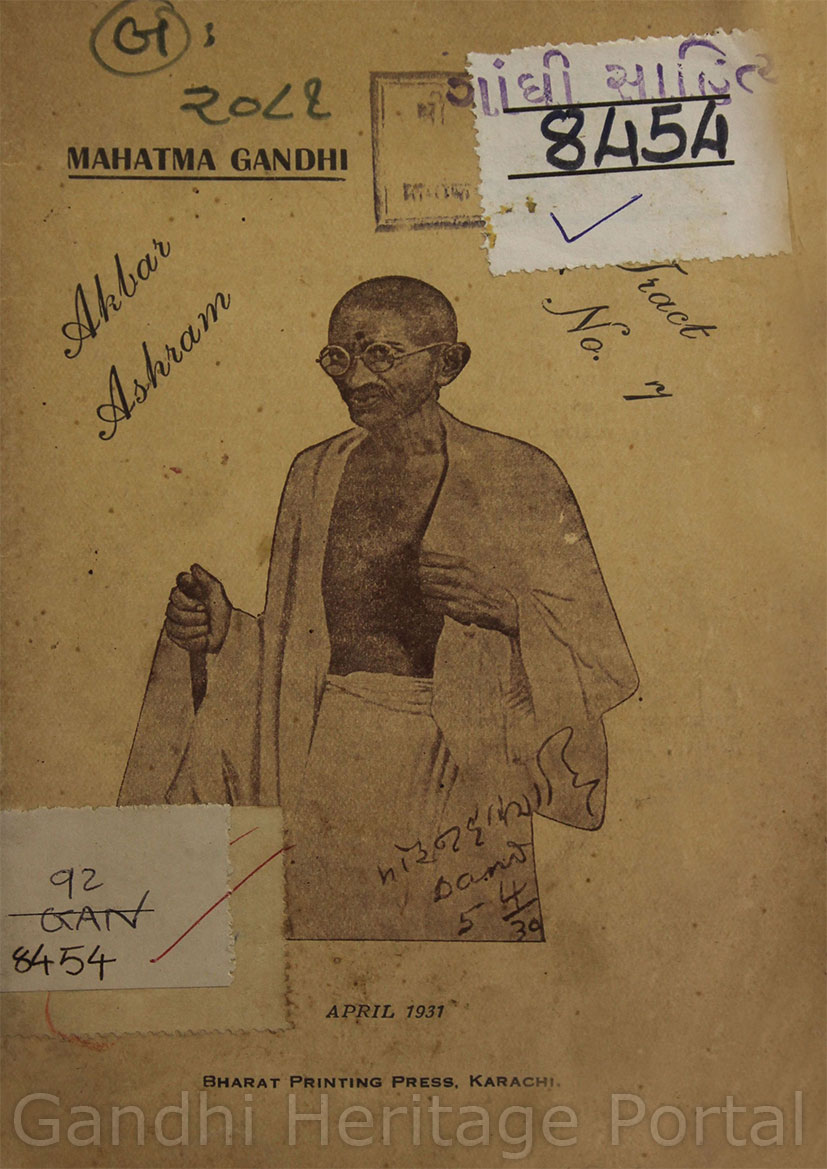 ૨૦૮૧
ગાંધી સાહિત્ય
8454
MAHATMA GANDHI
Akbar
Ashram
Tract
No. 7
5 4
30
92
GAN
8454
APRIL 1931
BHARAT PRINTING PRESS, KARACHI.
Gandhi Heritage Portal